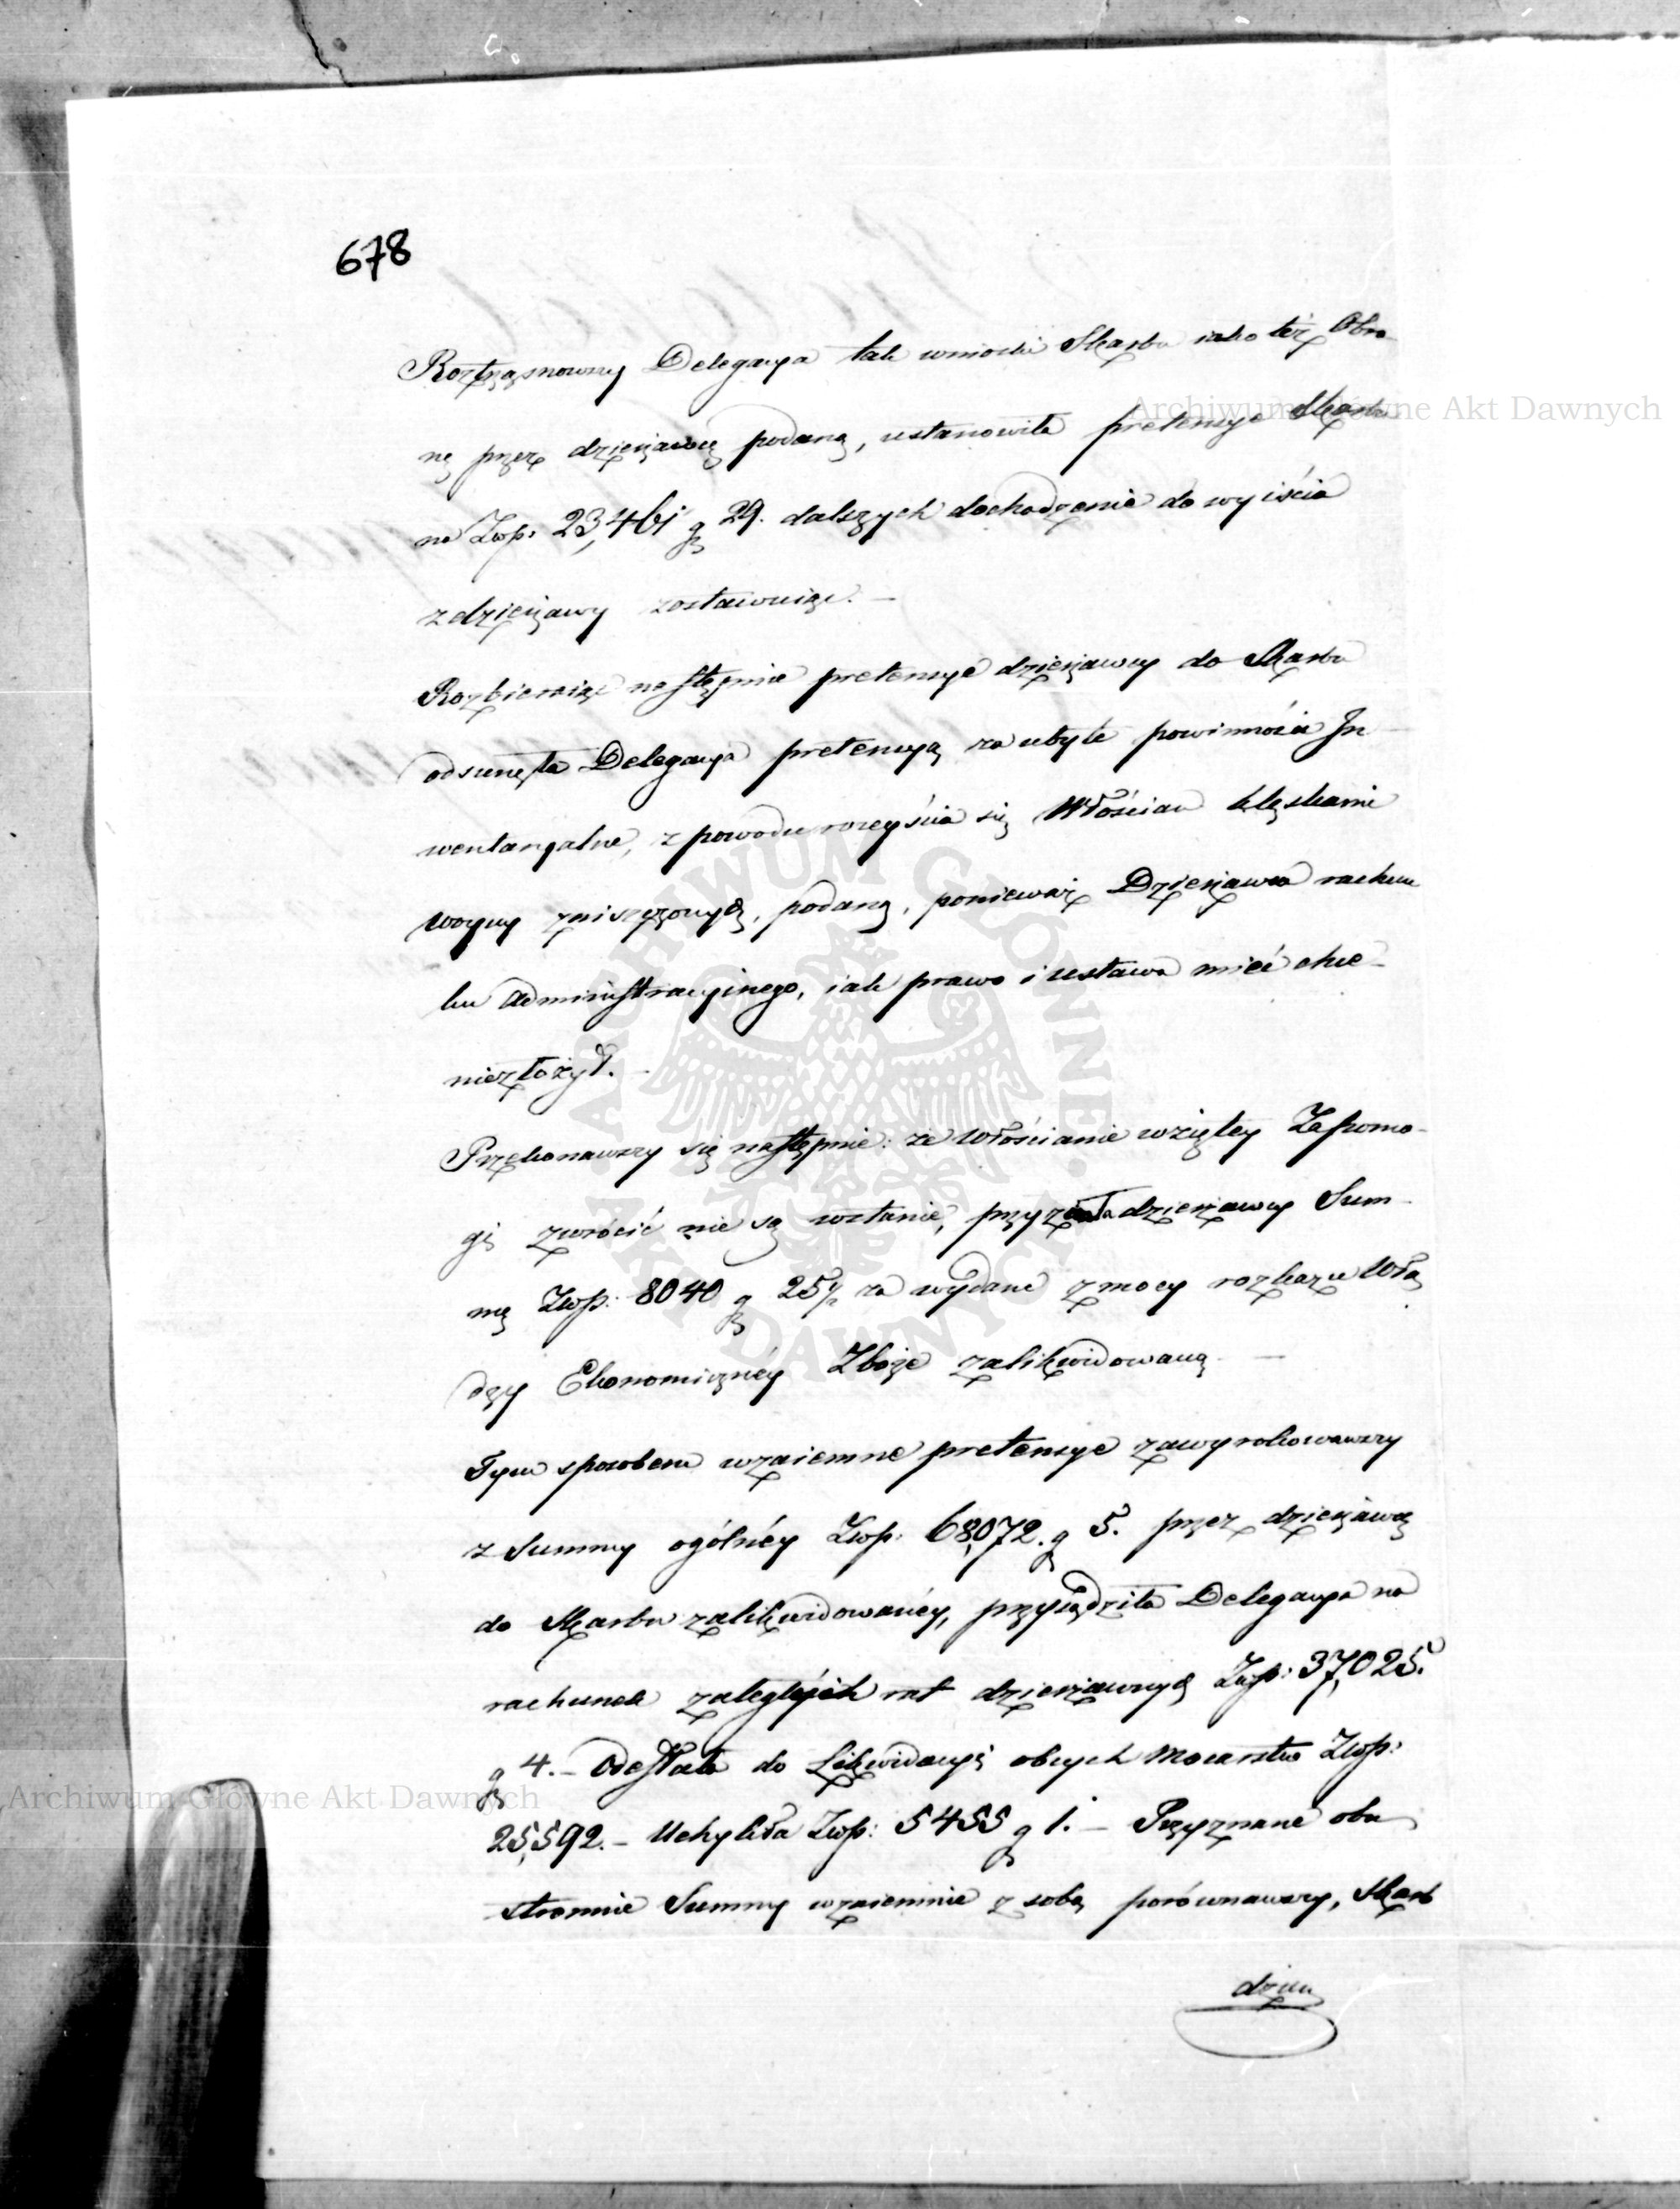 678
Roztrząsnąwszy Delegacya tak wnioski Skarbu iako też Obro-
nę przez dzierżawcę podaną, ustanowiła pretensye Skarbu
na Złwp: 23,461 gr 29. dalszych dochodzenie do wyiścia
z dzierżawy zostawuiąc. —
Rozbieraiąc następnie pretensye dzierżawcy do Skarbu
odsunęła Delegacya pretensyą za ubyłe powinności In-
wentarzalne, z powodu rozeyścia się Włościan klęskami
woyny zniszczonych, podaną, ponieważ Dzierżawca rachun
ku administracyinego, iak prawo i ustawa mieć chce
niezłożył. —
Przekonawszy się następnie: że włościanie wziętey Zapomo-
gi zwrócić nie są wstanie, przyznała dzierżawcy Sum-
mę Złwp: 8040 gr 25½ za wydane z mocy rozkazu Wła
dzy Ekonomicznéy Zboże zalikwidowaną. —
Tym sposobem wzaiemne pretensye zawyrokowawszy
z Summy ogólnéy Złwp: 68,072. gr 5. przez dzierżawcę
do Skarbu zalikwidowanéy, przysądziła Delegacya na
rachunek zaległych rat dzierżawnych Złwp: 37,025.
gr 4. — Odesłała do Likwidacyi obcych Mocarstw Złwp:
25,592. — Uchyliła Złwp: 5455 gr 1. — Przyznane obu
stronnie Summy wzaiemnie z sobą porównawszy, Skarb
Archiwum Główne Akt Dawnych
Archiwum Główne Akt Dawnych
ARCHIWUM GŁÓWNE AKT DAWNYCH